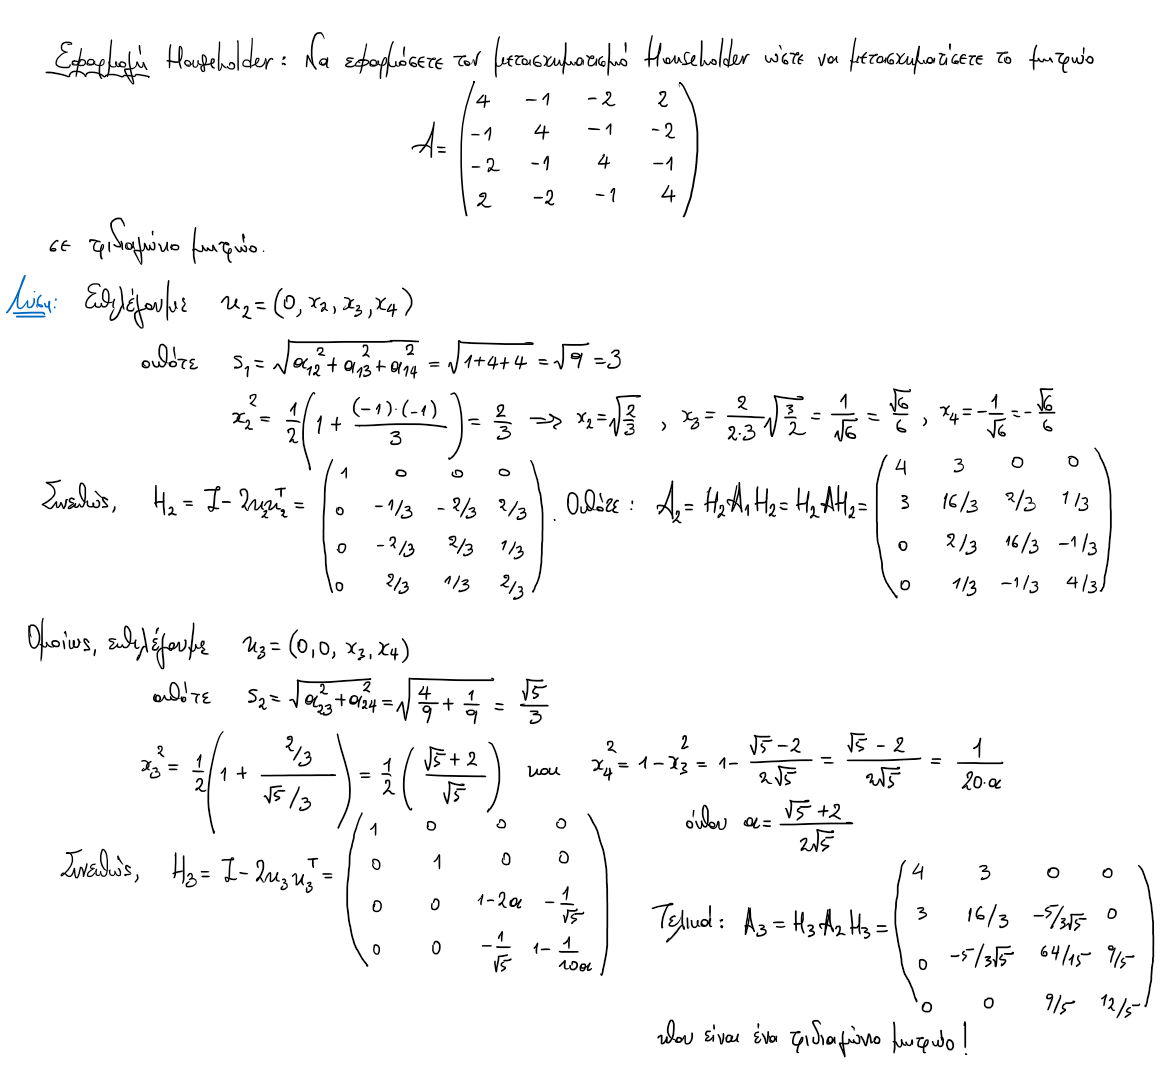 Εφαρμογή Householder: Να εφαρμόσετε τον μετασχηματισμό Householder ώστε να μετασχηματίσετε το μητρώο
A = \begin{pmatrix} 4 & -1 & -2 & 2 \\ -1 & 4 & -1 & -2 \\ -2 & -1 & 4 & -1 \\ 2 & -2 & -1 & 4 \end{pmatrix}
σε τριδιαγώνιο μητρώο.
Λύση: Επιλέγουμε u_2 = (0, x_2, x_3, x_4)
οπότε s_1 = \sqrt{α_{12}^2 + α_{13}^2 + α_{14}^2} = \sqrt{1+4+4} = \sqrt{9} = 3
x_2^2 = \frac{1}{2}\left(1 + \frac{(-1)·(-1)}{3}\right) = \frac{2}{3} ⟹ x_2 = \sqrt{\frac{2}{3}} , x_3 = \frac{2}{2·3}\sqrt{\frac{3}{2}} = \frac{1}{\sqrt{6}} = \frac{\sqrt{6}}{6} , x_4 = -\frac{1}{\sqrt{6}} = -\frac{\sqrt{6}}{6}
Συνεπώς, H_2 = I - 2u_2u_2^T = \begin{pmatrix} 1 & 0 & 0 & 0 \\ 0 & -1/3 & -2/3 & 2/3 \\ 0 & -2/3 & 2/3 & 1/3 \\ 0 & 2/3 & 1/3 & 2/3 \end{pmatrix}. Οπότε: A_2 = H_2A_1H_2 = H_2AH_2 = \begin{pmatrix} 4 & 3 & 0 & 0 \\ 3 & 16/3 & 2/3 & 1/3 \\ 0 & 2/3 & 16/3 & -1/3 \\ 0 & 1/3 & -1/3 & 4/3 \end{pmatrix}
Ομοίως, επιλέγουμε u_3 = (0,0, x_3, x_4)
οπότε s_2 = \sqrt{α_{23}^2 + α_{24}^2} = \sqrt{\frac{4}{9} + \frac{1}{9}} = \frac{\sqrt{5}}{3}
x_3^2 = \frac{1}{2}\left(1 + \frac{2/3}{\sqrt{5}/3}\right) = \frac{1}{2}\left(\frac{\sqrt{5}+2}{\sqrt{5}}\right) και x_4^2 = 1 - x_3^2 = 1 - \frac{\sqrt{5}-2}{2\sqrt{5}} = \frac{\sqrt{5}-2}{2\sqrt{5}} = \frac{1}{20·α}
όπου α = \frac{\sqrt{5}+2}{2\sqrt{5}}
Συνεπώς, H_3 = I - 2u_3u_3^T = \begin{pmatrix} 1 & 0 & 0 & 0 \\ 0 & 1 & 0 & 0 \\ 0 & 0 & 1-2α & -\frac{1}{\sqrt{5}} \\ 0 & 0 & -\frac{1}{\sqrt{5}} & 1-\frac{1}{10α} \end{pmatrix}
Τελικά: A_3 = H_3A_2H_3 = \begin{pmatrix} 4 & 3 & 0 & 0 \\ 3 & 16/3 & -5/3\sqrt{5} & 0 \\ 0 & -5/3\sqrt{5} & 64/15 & 9/5 \\ 0 & 0 & 9/5 & 12/5 \end{pmatrix}
που είναι ένα τριδιαγώνιο μητρώο!